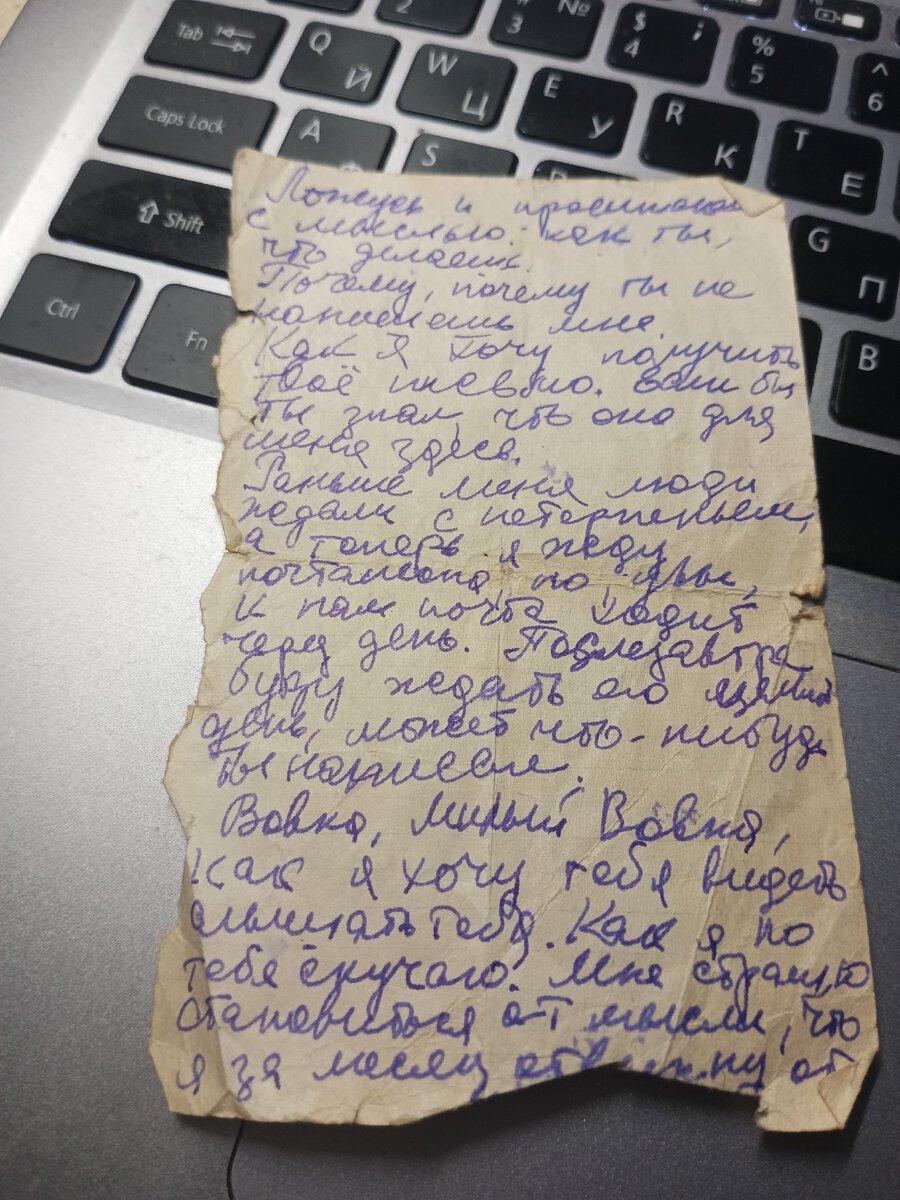 Tab
Q Й
W Ц
E У
R К
T Е
2
3 №
$ 4 ;
% 5
^ 6
Caps Lock
A
S
G П
Shift
Ctrl
Fn
В
Ложусь и просыпаюсь
с мыслью: как ты,
что делаешь.
Почему, почему ты не
напишешь мне.
Как я хочу получить
твоё письмо. Если бы
ты знал, что оно для
меня здесь.
Раньше меня люди
ждали с нетерпеньем,
а теперь я жду
почтальона, но, увы,
к нам почта ходит
через день. Послезавтра
буду ждать его целый
день, может что-нибудь
ты написал.
Вовка, милый Вовка,
как я хочу тебя видеть
слышать тебя. Как я по
тебе скучаю. Мне страшно
становиться от мысли, что
я за месяц отвыкну от